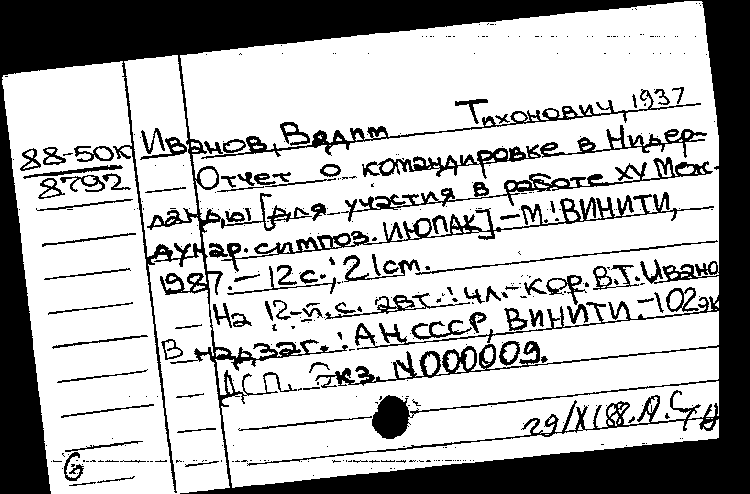 88-50К
8792
Иванов, Вадим Тихонович, 1937
Отчет о командировке в Нидер-
ланды [для участия в работе XV Меж-
дунар. симпоз. ИЮПАК]. - М.: ВИНИТИ,
1987. - 12 с.; 21 см.
На 12-й с. авт.: чл.-кор. В.Т. Ивано
В надзаг.: АН СССР, ВИНИТИ. - 102 эк
ДСП. Экз. N000009.
29/XI 88. Л.С.
6